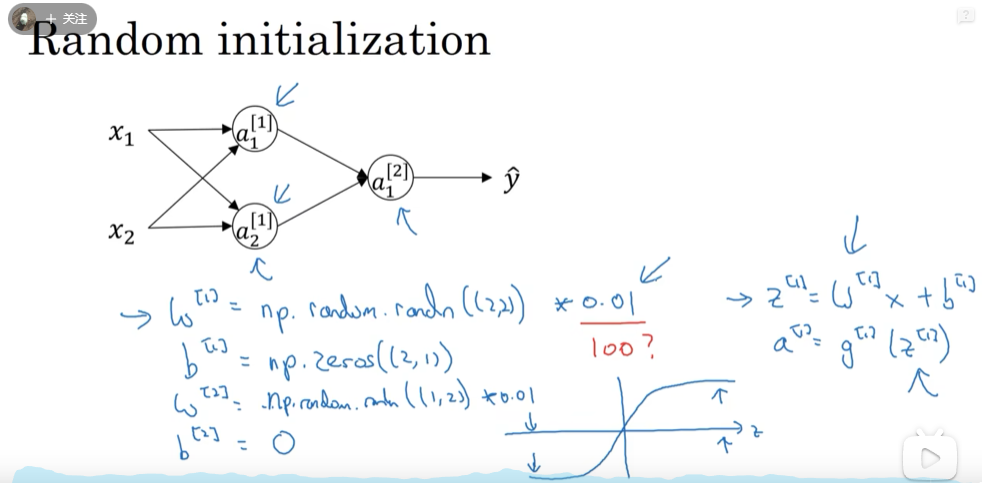 + 关注
Random initialization
x₁
a₁^[1]
x₂
a₂^[1]
a₁^[2]
ŷ
→ W^[1] = np.random.randn((2,2)) * 0.01
100?
b^[1] = np.zeros((2,1))
W^[2] = np.random.randn((1,2)) * 0.01
b^[2] = 0
→ z^[1] = W^[1] x + b^[1]
a^[1] = g^[1](z^[1])
z
?